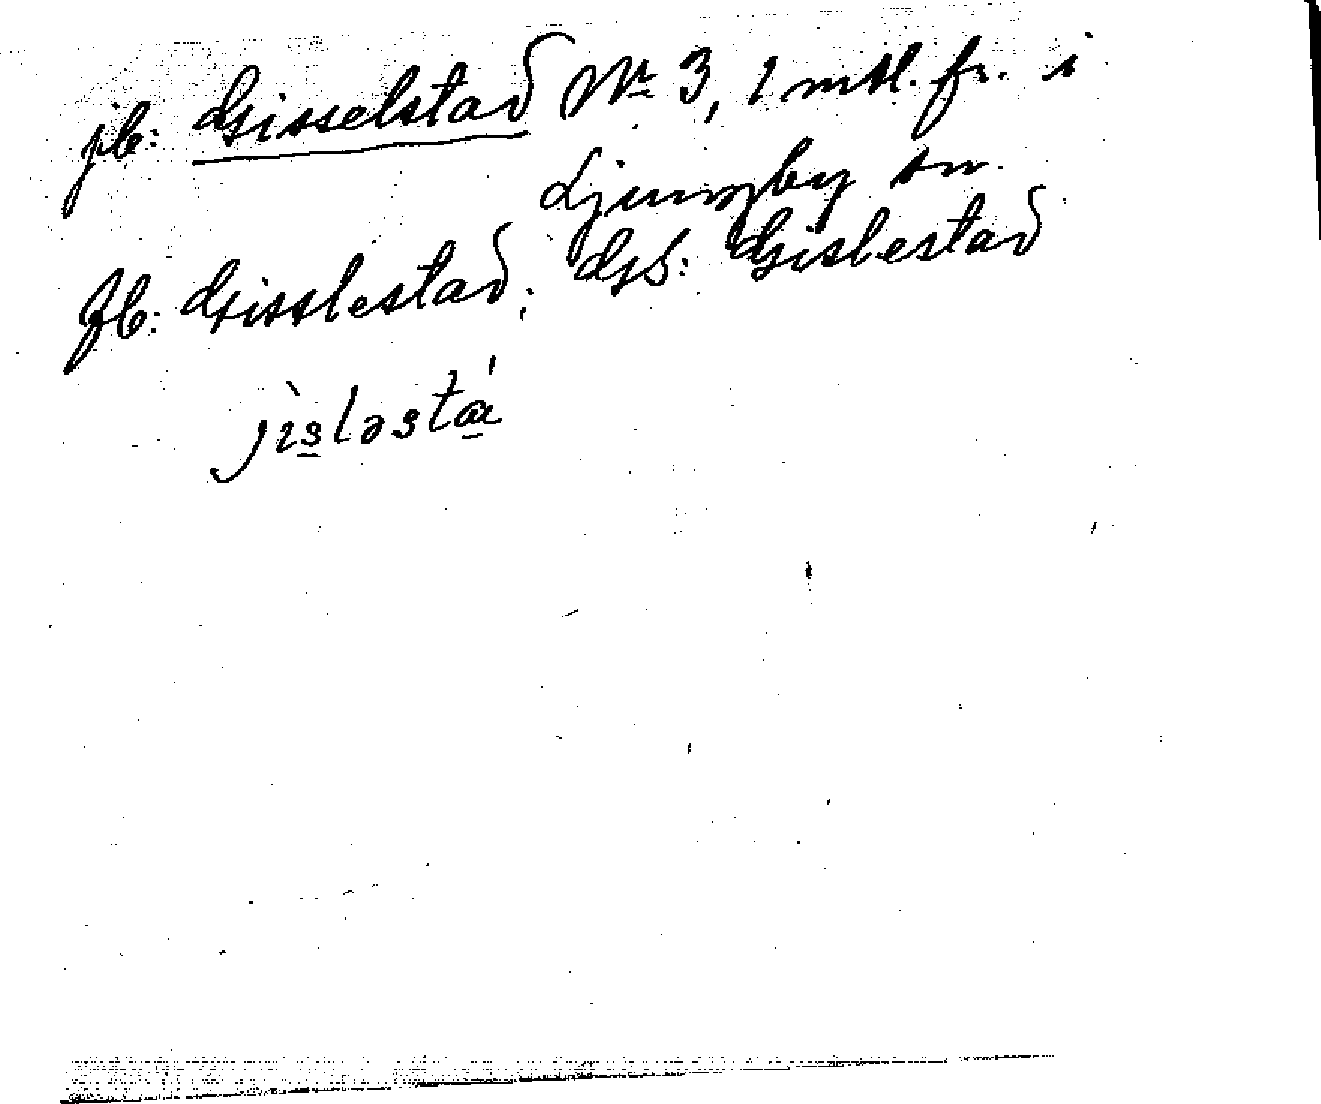 jb: Gisselstad Nr 3, 1 mtl. fr. i
Ljungby sn.
fb: Gisslestad; GS: Gislestad
jìsləstá